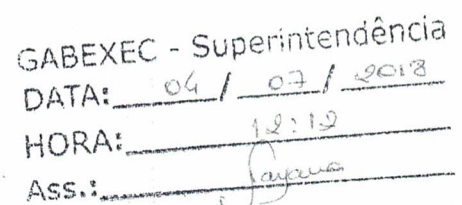 GABEXEC - Superintendência
DATA: 04 / 07 / 2018
HORA: 12:12
Ass.: Dayana